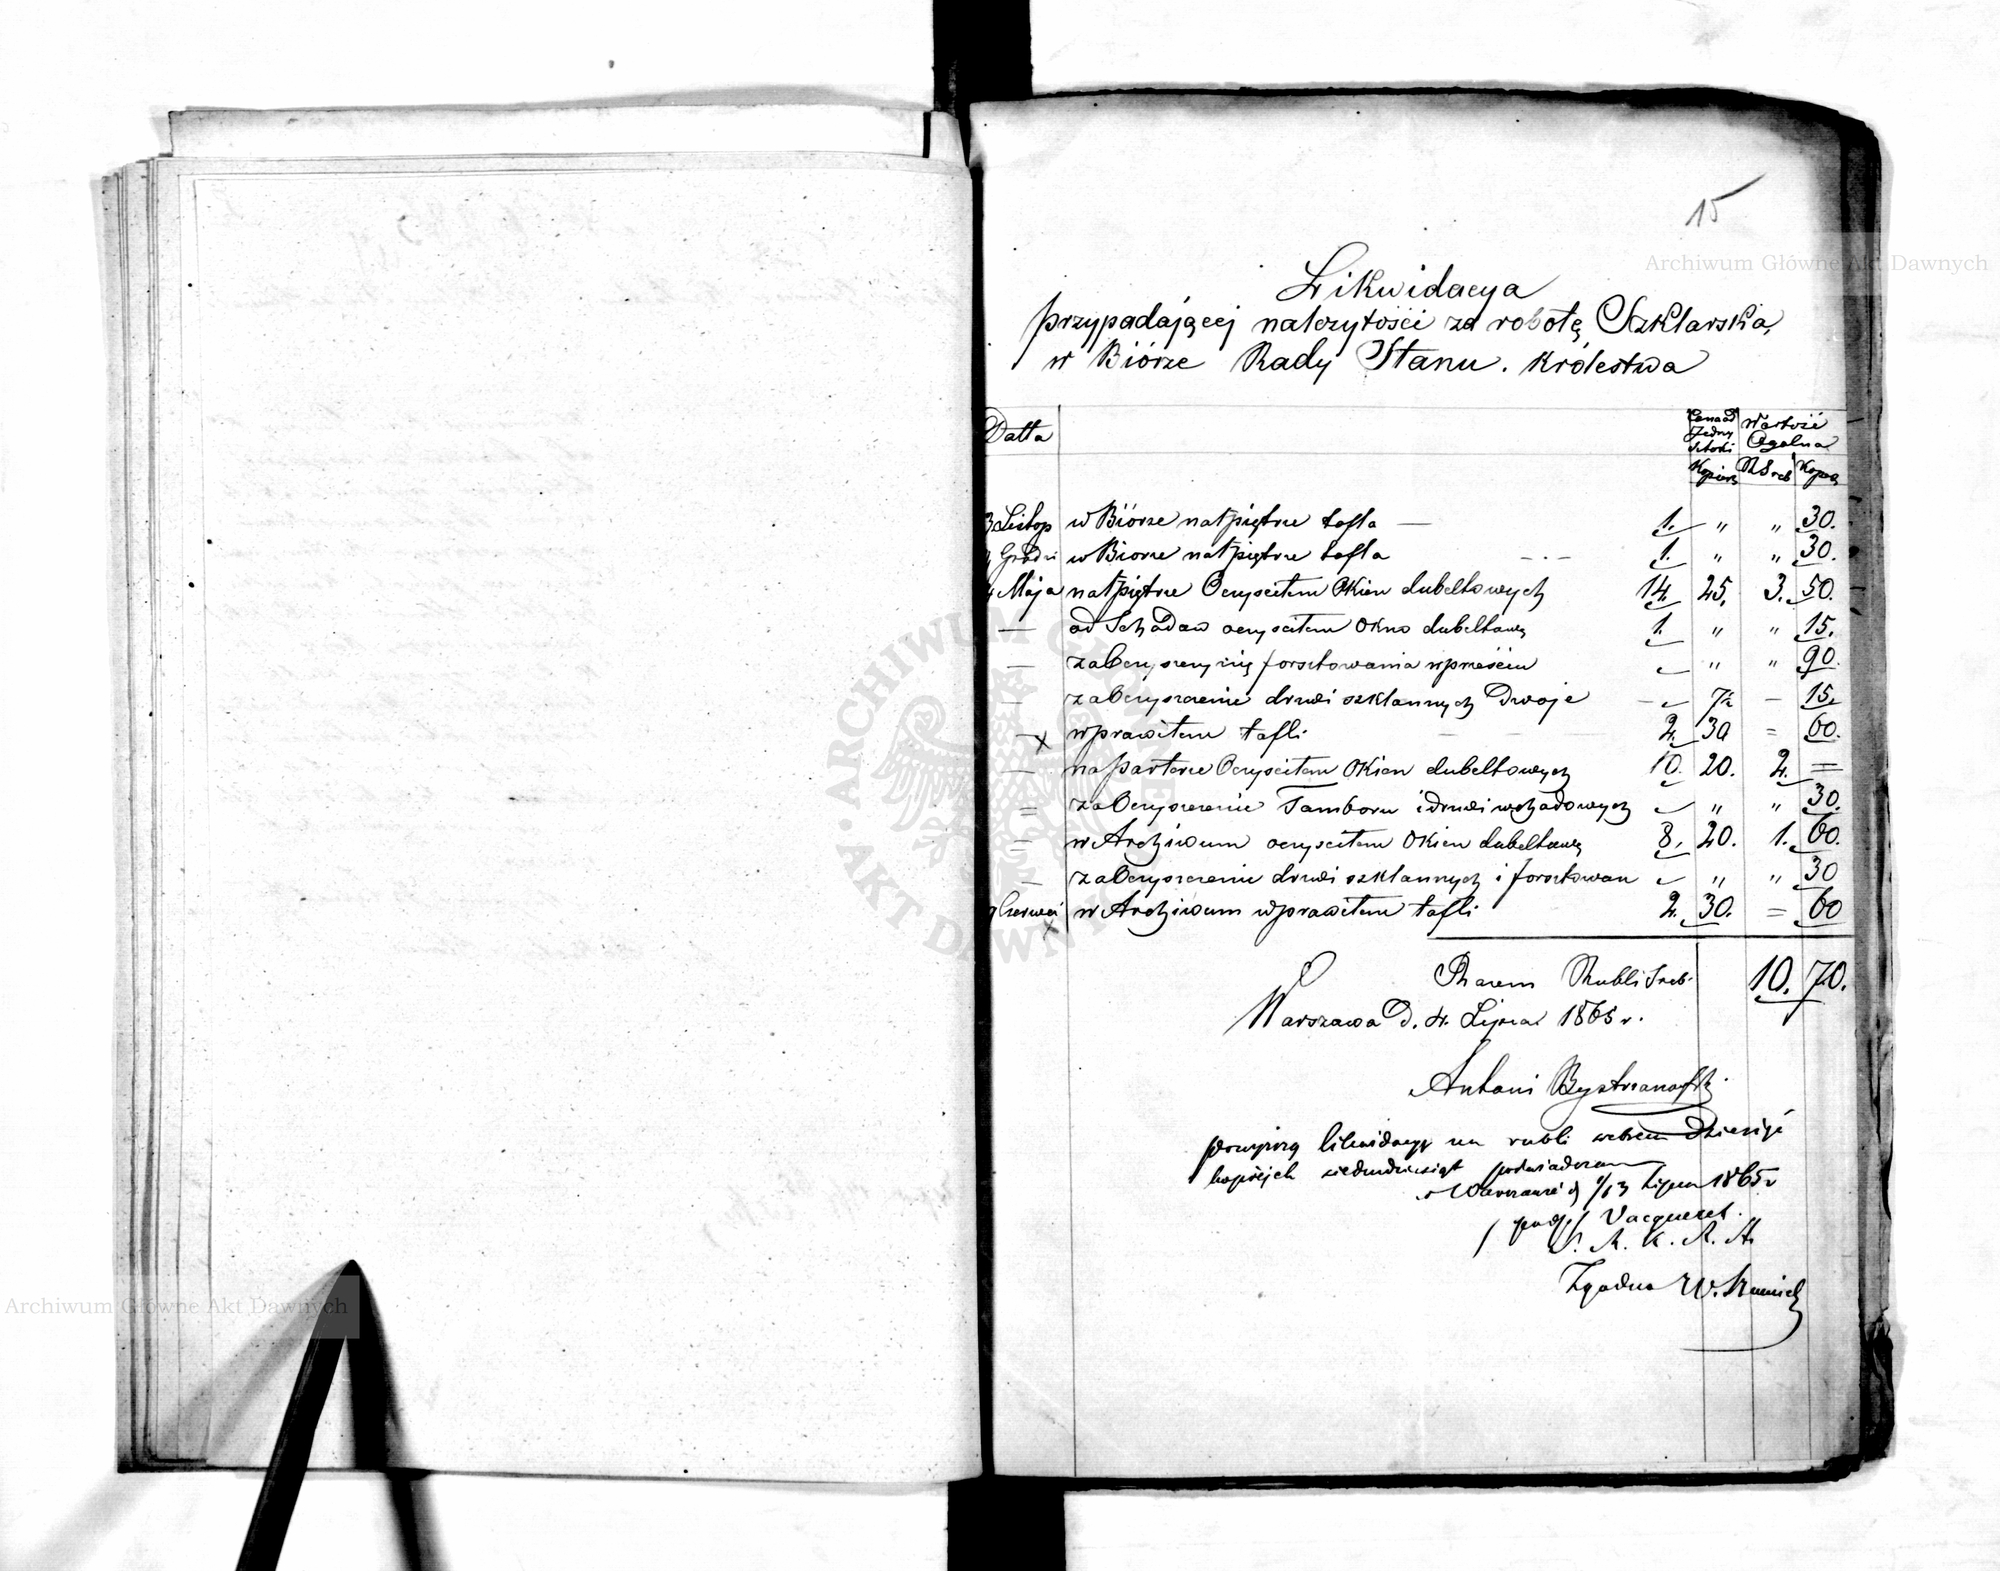 15
Likwidacya
przypadającej należytości za robotę Szklarską
w Biórze Rady Stanu. Królestwa
Datta
Cena od Jedny Sztuki
Wartość Ogolna
Kopiek RSreb Kopiek
3 Listop w Biórze na 1 piętrze tafla — 1. " " 30.
Grudn w Biorze na 1 piętrze tafla 1. " " 30.
Maja na 1 piętrze Oczyscitem Okien dubeltowych 14. 25. 3. 50.
— od Schodow oczyscitem Okno dubeltowe 1. " " 15.
— za Oczyszczenie forsztowania " " 90.
— za Oczyszczenie drzwi szklannych Dwoje 7½ — 15.
— x wprawitem tafli 2. 30 = 60.
— na Parterze Oczyscitem Okien dubeltowych 10. 20. 2. =
= za Oczyszczenie Tamboru i drzwi wchodowych " " 30.
= w Archiwum oczyscitem Okien dubeltowe 8. 20. 1. 60.
— za Oczyszczenie drzwi szklannych i forsztowan " " 30
Czerwca x w Archiwum wprawitem tafli 2. 30. = 60
Razem Rubli Sreb. 10. 70.
Warszawa D. 4. Lipca 1865 r.
Antoni Bystrzanofski.
powyższą likwidacyę na rubli srebrem dziesięć
kopiejek siedmdziesiąt poświadczam
w Warszawie d 1/13 Lipca 1865 r
/ podp / Vacqueret.
S. R. K. R. St.
Zgodno W.
Archiwum Główne Akt Dawnych
Archiwum Główne Akt Dawnych
ARCHIWUM GŁÓWNE AKT DAWNYCH